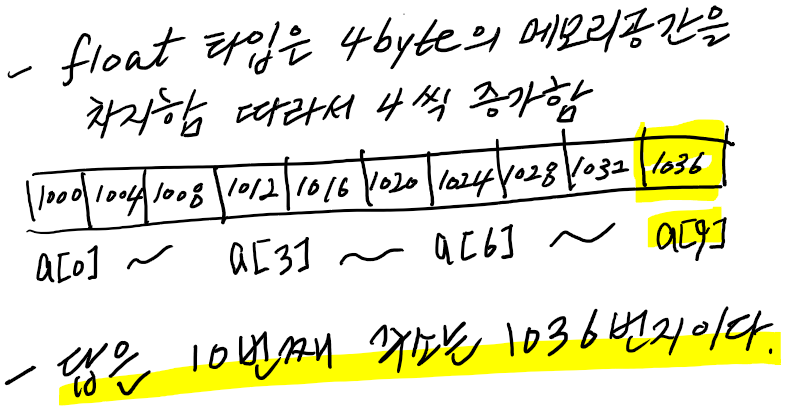 - float 타입은 4byte의 메모리공간을
차지함 따라서 4씩 증가함
1000 1004 1008 1012 1016 1020 1024 1028 1032 1036
a[0] ~ a[3] ~ a[6] ~ a[9]
- 답은 10번째 주소는 1036번지이다.